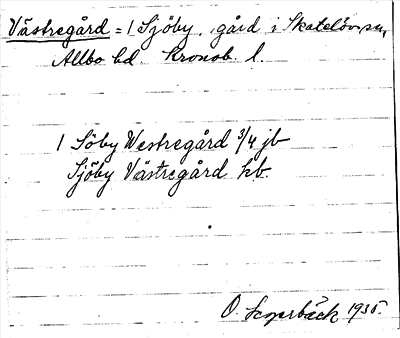 Västregård = 1 Sjöby, gård i Skatelövs sn,
Allbo hd. Kronob. l.
1 Söby Westregård 3/4 jb
Sjöby Västregård kb.
O. 1935.